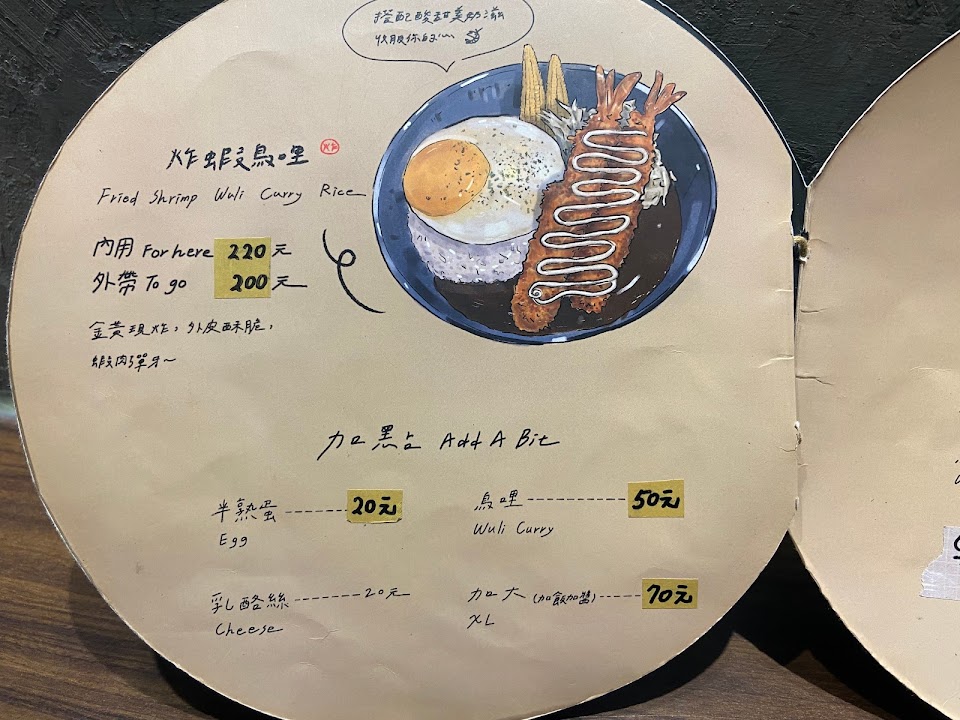 搭配酸甜美奶滋
收服你的
炸蝦烏哩
Fried Shrimp Wuli Curry Rice
內用 For here 220元
外帶 To go 200元
金黃現炸,外皮酥脆,
蝦肉彈牙~
加點 Add A Bit
半熟蛋 ------ 20元
Egg
烏哩 ------ 50元
Wuli Curry
乳酪絲 ------ 20元
Cheese
加大 (加飯加醬) ---- 70元
XL